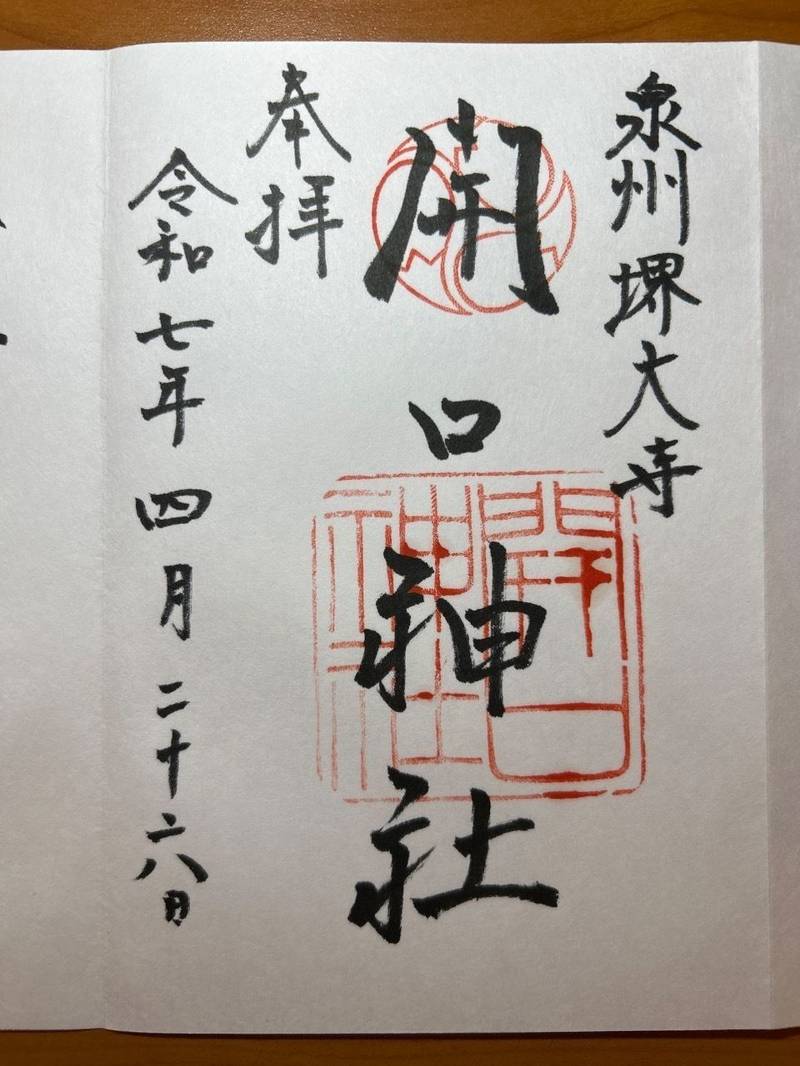 泉州堺大寺
開口神社
開口
神社
奉拝
令和七年四月二十六日